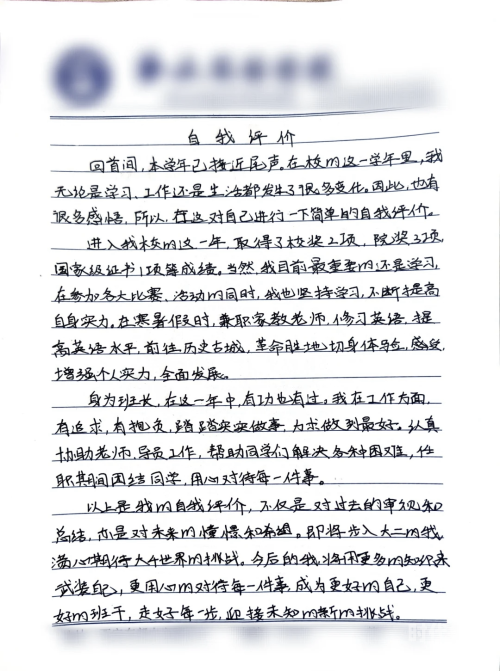 自我评价
回首间,本学年已接近尾声。在校的这一学年里,我
无论是学习、工作还是生活都发生了很多变化。因此,也有
很多感悟,所以,在这对自己进行一下简单的自我评价。
进入我校的这一年,取得了校奖2项,院奖3项,
国家级证书1项等成绩。当然,我目前最重要的还是学习,
在参加各大比赛、活动的同时,我也坚持学习,不断提高
自身实力。在寒暑假时,兼职家教老师,修习英语,提
高英语水平,前往历史古城,革命胜地切身体验,感受,
增强个人实力,全面发展。
身为班长,在这一年中,有功也有过。我在工作方面,
有追求,有抱负,踏踏实实做事,力求做到最好。认真
协助老师,导员工作,帮助同学们解决各种困难,任
职期间团结同学,用心对待每一件事。
以上是我的自我评价,不仅是对过去的审视和
总结,也是对未来的憧憬和希望。即将步入大二的我,
满心期待大千世界的挑战。今后的我,将用更多的知识来
武装自己,更用心的对待每一件事,成为更好的自己,更
好的班干,走好每一步,迎接未知的新的挑战。